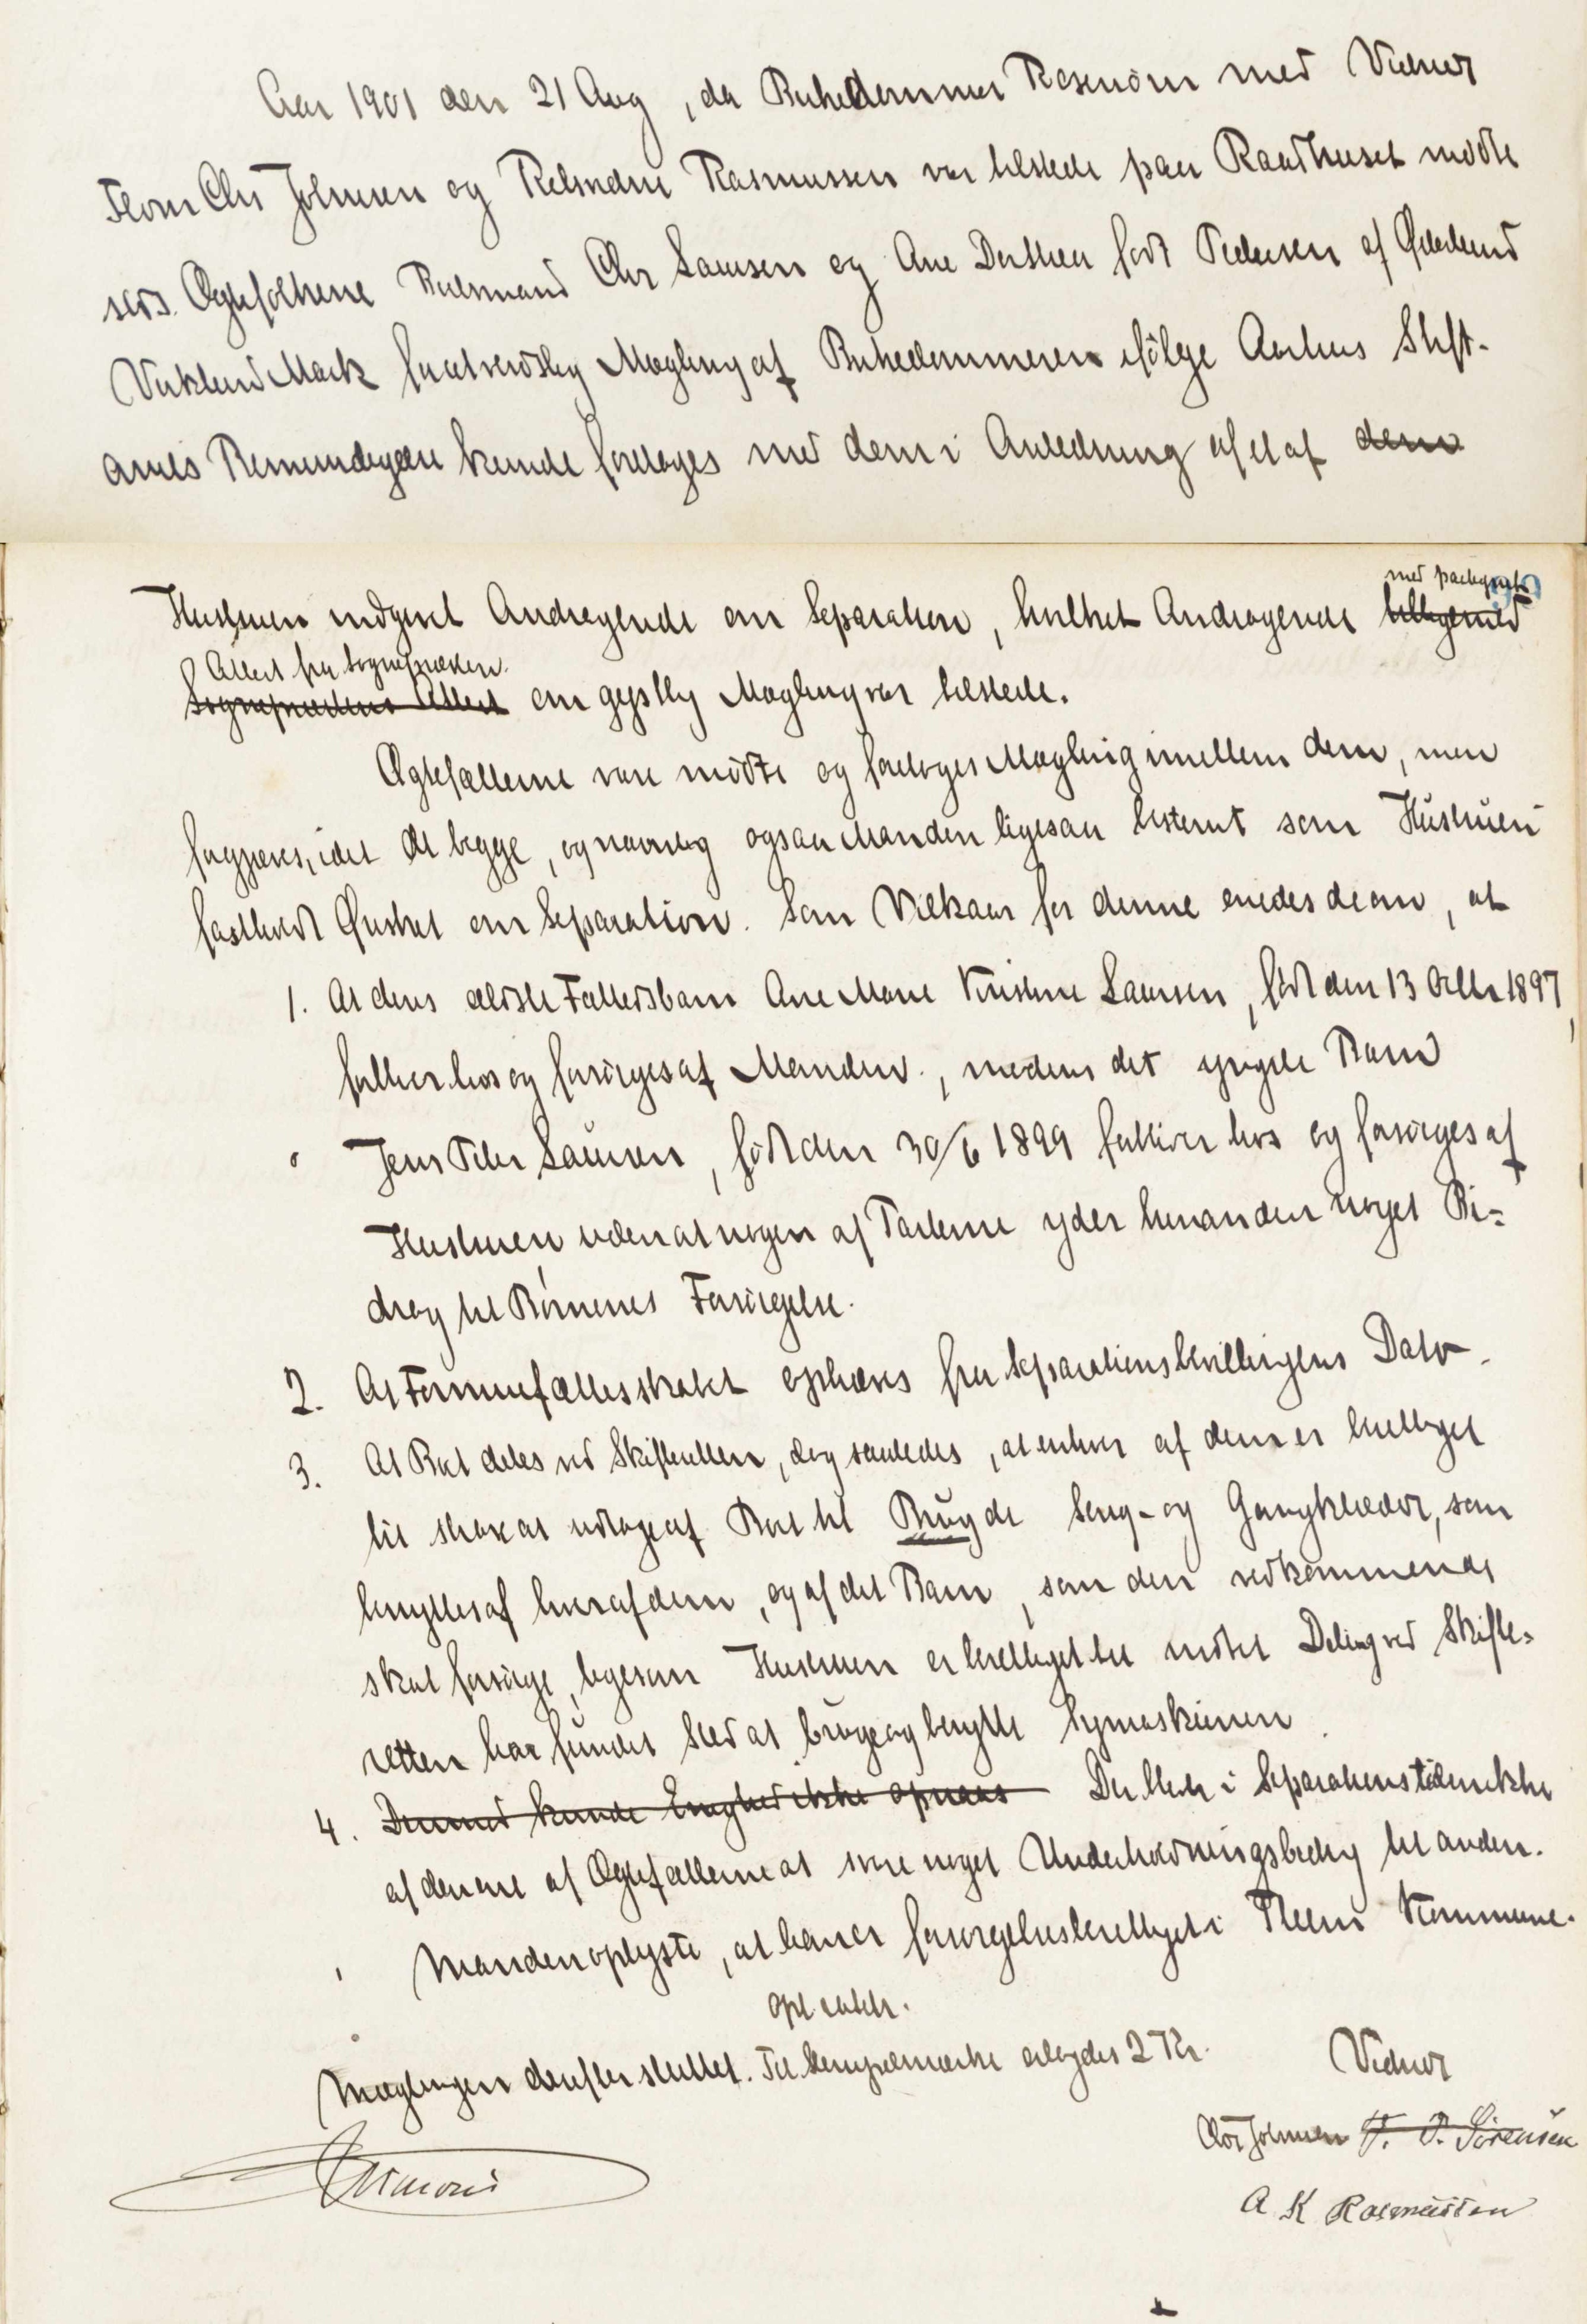 Aar 1901 den 21 Aug, da Byfoged Rosenörn med Vidner
Chr Johnsen og Rasmussen var tilstede paa Raadhuset mødte
Ægtefolkene Chr Laursen og Ane Dorthea født Pedersen af
Mark Mægling af ifølge Aarhus Stift-
amts Bemyndigelse kunde foretages med dem i Anledning af et af dem
med paategnet
Hustruen indgivet Andragende om Separation, hvilket Andragende tilligemed
Attest fra Sognepræsten
Sognepræstens Attest om gejstlig Mægling var tilstede.
Ægtefællerne vare mødte og foretoges Mægling imellem dem, men
forgjæves, idet de begge, og navnlig ogsaa Manden ligesaa bestemt som Hustruen
fastholdt Ønsket om Separation. Som Vilkaar for denne enedes de om, at
1. At deres ældste Fællesbarn Ane Marie Kirstine Laursen, født den 13 1897,
forbliver hos og forsørges af Manden, medens det yngste Barn
Jens Peter Laursen, født den 30/6 1899 forbliver hos og forsørges af
Hustruen uden at nogen af Parterne yder hinanden noget Bi-
drag til Børnenes Forsørgelse.
2. At Formuefællesskabet ophæves fra Separationsbevillingens Dato.
3. At Boet deles ved Skifteretten, dog saaledes, at enhver af dem er berettiget
til strax at udtage af Boet til Brug de Seng- og Gangklæder, som
benyttes af hver af dem, og af det Barn, som den vedkommende
skal forsørge, ligesom Hustruen er berettiget til indtil Deling ved Skifte-
retten har fundet Sted at bruge og benytte Symaskinen.
4. Derimod kunde Enighed ikke opnaas Der bliver i Separationstiden ikke
af den ene af Ægtefællerne at svare noget Underholdningsbidrag til anden.
Manden oplyste, at han er forsørgelsesberettiget i Them Kommune.
Opl. vedtt.
Mæglingen derefter sluttet. Til Stempelmærke erlagdes 2 Kr.
Vidner
Chr Johnsen P. Sörensen
A K Rasmussen